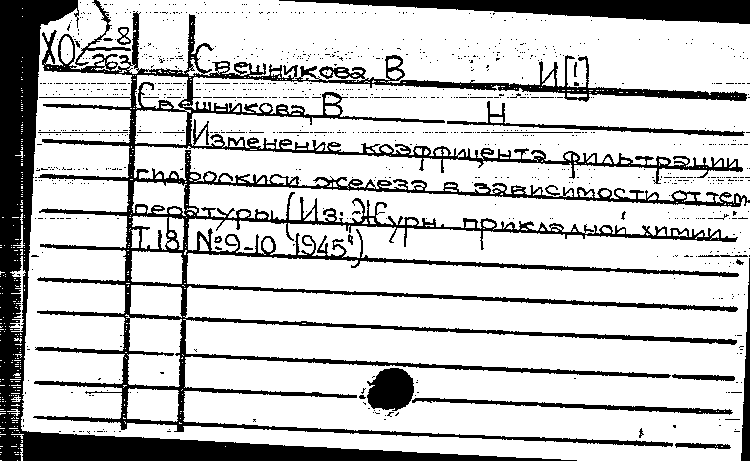 ХО -8
263
Свешникова, В И[!]
Свешникова, В Н
Изменение коэффицента фильтрации
гидроокиси железа в зависимости от тем
пературы. (Из: "Журн. прикладной химии.
Т. 18, №9-10 1945").